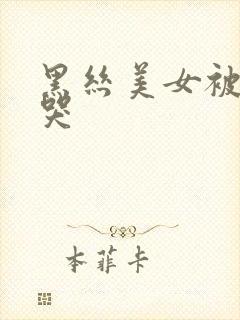 黑丝美女被
哭
本菲卡